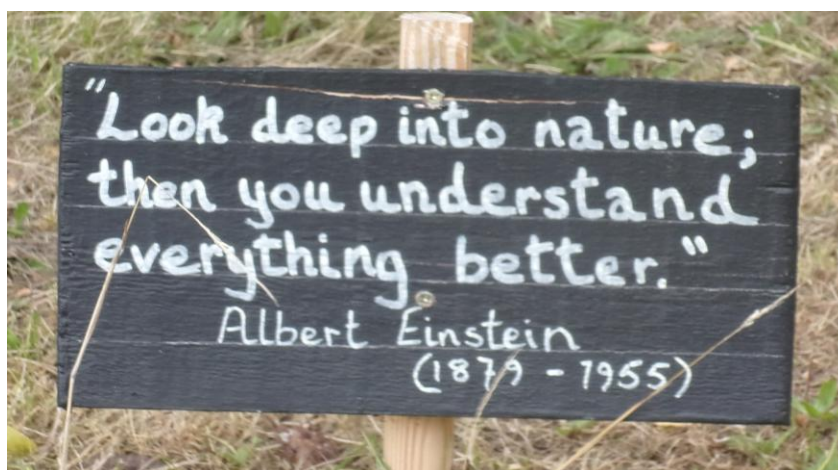 "Look deep into nature;
then you understand
everything better."
Albert Einstein
(1879 - 1955)